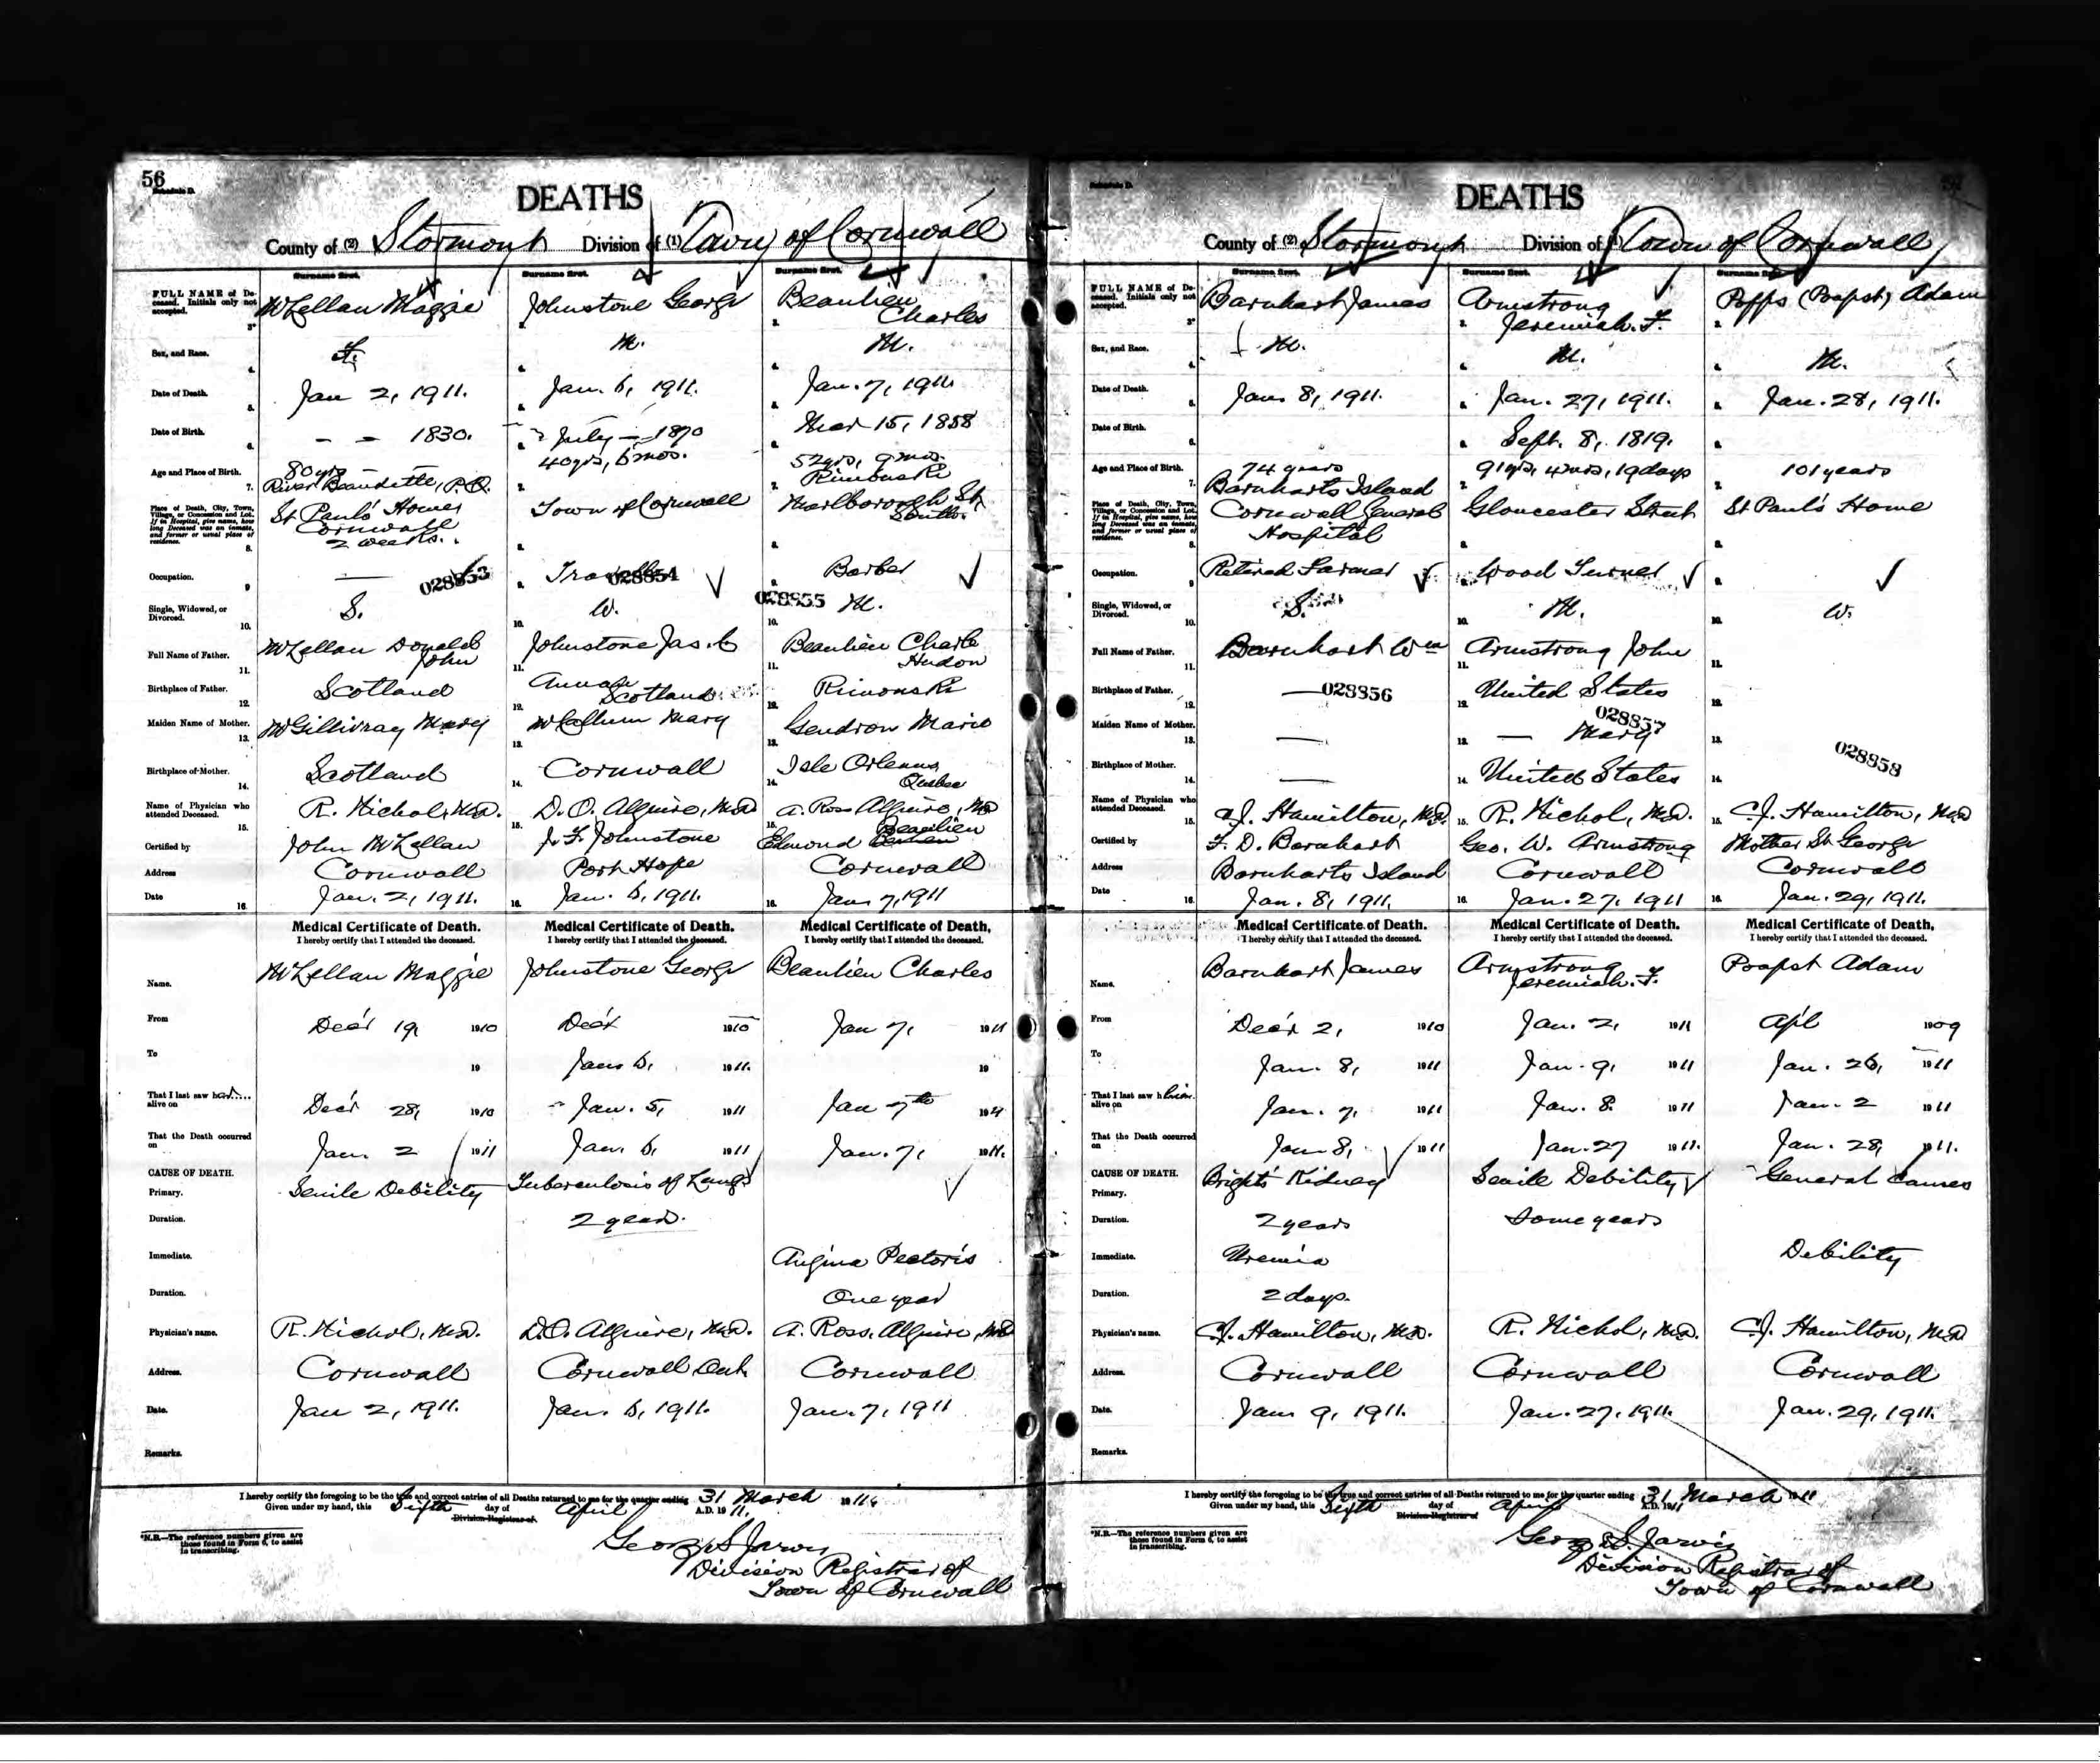 56
Schedule D.
DEATHS
County of (2) Stormont Division of (1) Town of Cornwall
Surname first. Surname first. Surname first.
FULL NAME of Deceased. Initials only not accepted. 3*
McLellan Maggie
Johnstone George
Beaulieu Charles
Sex, and Race. 4. F. M. M.
Date of Death. 5. Jan 2, 1911. Jan. 6, 1911. Jan. 7, 1911
Date of Birth. 6. – – 1830. – July – 1870 Mar 15, 1858
Age and Place of Birth. 7.
80 yrs River Beaudette, P.Q.
40 yrs, 6 mos.
52 yrs, 9 mos. Rimouski
Place of Death, City, Town, Village, or Concession and Lot. If in Hospital, give name, how long Deceased was an inmate, and former or usual place of residence. 8.
St Paul's Home Cornwall 2 weeks.
Town of Cornwall
Marlborough St, South.
Occupation. 9 — 028853 028854 Barber
Single, Widowed, or Divorced. 10. S. W. 028855 M.
Full Name of Father. 11.
McLellan Donald John
Johnstone Jas. C
Beaulieu Charle Hudon
Birthplace of Father. 12. Scotland Scotland Rimouski
Maiden Name of Mother. 13. McGillivray Mary McCallum Mary Gendron Marie
Birthplace of Mother. 14. Scotland Cornwall Isle Orleans, Quebec
Name of Physician who attended Deceased. 15. R. Nichol, M.D. D.O. Alguire, M.D A. Ross Alguire, MD
Certified by John McLellan J. F. Johnstone Edmond Beaulieu
Address Cornwall Port Hope Cornwall
Date 16. Jan. 2, 1911. Jan. 6, 1911. Jan 7, 1911
Medical Certificate of Death. Medical Certificate of Death. Medical Certificate of Death.
I hereby certify that I attended the deceased. I hereby certify that I attended the deceased. I hereby certify that I attended the deceased.
Name. McLellan Maggie Johnstone George Beaulieu Charles
From Dec'r 19, 1910 Dec'r 1910 Jan 7, 1911
To 19 Jan 6, 1911. 19
That I last saw her alive on Dec'r 28, 1910 Jan. 5, 1911 Jan 7th 1911
That the Death occurred on Jan. 2 1911 Jan. 6, 1911 Jan. 7, 1911.
CAUSE OF DEATH.
Primary. Senile Debility Tuberculosis of Lungs
Duration. 2 years.
Immediate. Angina Pectoris
Duration. One year
Physician's name. R. Nichol, M.D. D.O. Alguire, M.D. A. Ross Alguire, MD
Address. Cornwall Cornwall Ont. Cornwall
Date. Jan 2, 1911. Jan. 6, 1911. Jan. 7, 1911
Remarks.
I hereby certify the foregoing to be the true and correct entries of all Deaths returned to me for the quarter ending 31 March 1911.
Given under my hand, this Sixth day of April A.D. 1911.
Division Registrar of
George S. Jarvis
Division Registrar of
Town of Cornwall
*N.B.—The reference numbers given are those found in Form 6, to assist in transcribing.
Schedule D.
DEATHS
County of (2) Stormont Division of (1) Town of Cornwall
Surname first. Surname first. Surname first.
FULL NAME of Deceased. Initials only not accepted. 3*
Barnhart James
Armstrong Jeremiah. F.
Popps (Poapst) Adam
Sex, and Race. 4. M. M. M.
Date of Death. 5. Jan. 8, 1911. Jan. 27, 1911. Jan. 28, 1911.
Date of Birth. 6. Sept. 8, 1819.
Age and Place of Birth. 7.
74 years Barnharts Island
91 yrs, 4 mos, 19 days
101 years
Place of Death, City, Town, Village, or Concession and Lot. If in Hospital, give name, how long Deceased was an inmate, and former or usual place of residence. 8.
Cornwall General Hospital
Gloucester Street
St Paul's Home
Occupation. 9 Retired Farmer Wood Turner
Single, Widowed, or Divorced. 10. S. M. W.
Full Name of Father. 11. Barnhart Wm Armstrong John
Birthplace of Father. 12. — 028856 United States
Maiden Name of Mother. 13. — — Mary 028857
Birthplace of Mother. 14. — United States 028858
Name of Physician who attended Deceased. 15. C.J. Hamilton, M.D. R. Nichol, M.D. C.J. Hamilton, M.D
Certified by F. D. Barnhart Geo. W. Armstrong Mother St George
Address Barnharts Island Cornwall Cornwall
Date 16. Jan. 8, 1911. Jan. 27, 1911 Jan. 29, 1911.
Medical Certificate of Death. Medical Certificate of Death. Medical Certificate of Death.
I hereby certify that I attended the deceased. I hereby certify that I attended the deceased. I hereby certify that I attended the deceased.
Name. Barnhart James Armstrong Jeremiah. F. Poapst Adam
From Dec'r 2, 1910 Jan. 2, 1911 Apl 1909
To Jan. 8, 1911 Jan. 9, 1911 Jan. 26, 1911
That I last saw him alive on Jan. 7, 1911 Jan. 8. 1911 Jan. 2 1911
That the Death occurred on Jan 8, 1911 Jan. 27 1911. Jan. 28, 1911.
CAUSE OF DEATH.
Primary. Bright's Kidney Senile Debility General Causes
Duration. 2 years Some years
Immediate. Uremia Debility
Duration. 2 days.
Physician's name. C.J. Hamilton, M.D. R. Nichol, M.D. C.J. Hamilton, M.D
Address. Cornwall Cornwall Cornwall
Date. Jan. 9, 1911. Jan. 27, 1911. Jan. 29, 1911.
Remarks.
I hereby certify the foregoing to be the true and correct entries of all Deaths returned to me for the quarter ending 31 March 1911
Given under my hand, this Sixth day of April A.D. 1911
Division Registrar of
George S. Jarvis
Division Registrar of
Town of Cornwall
*N.B.—The reference numbers given are those found in Form 6, to assist in transcribing.